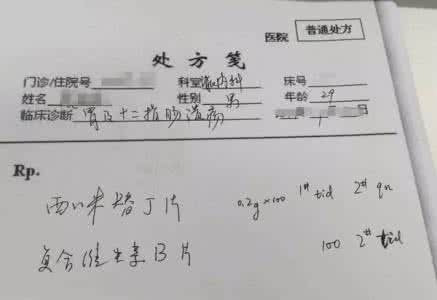 医院 普通处方
处方笺
门诊/住院号 科室 消内科 床号
姓名 性别 男 年龄 29
临床诊断 胃及十二指肠溃疡
Rp.
西咪替丁片 0.2g×100 1# tid 2# qn
复合维生素B片 100 2# tid